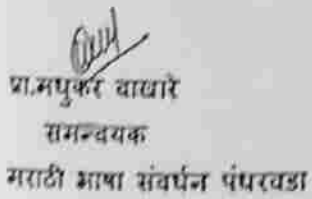 प्रा.मधुकर वाखारे
समन्वयक
मराठी भाषा संवर्धन पंधरवडा